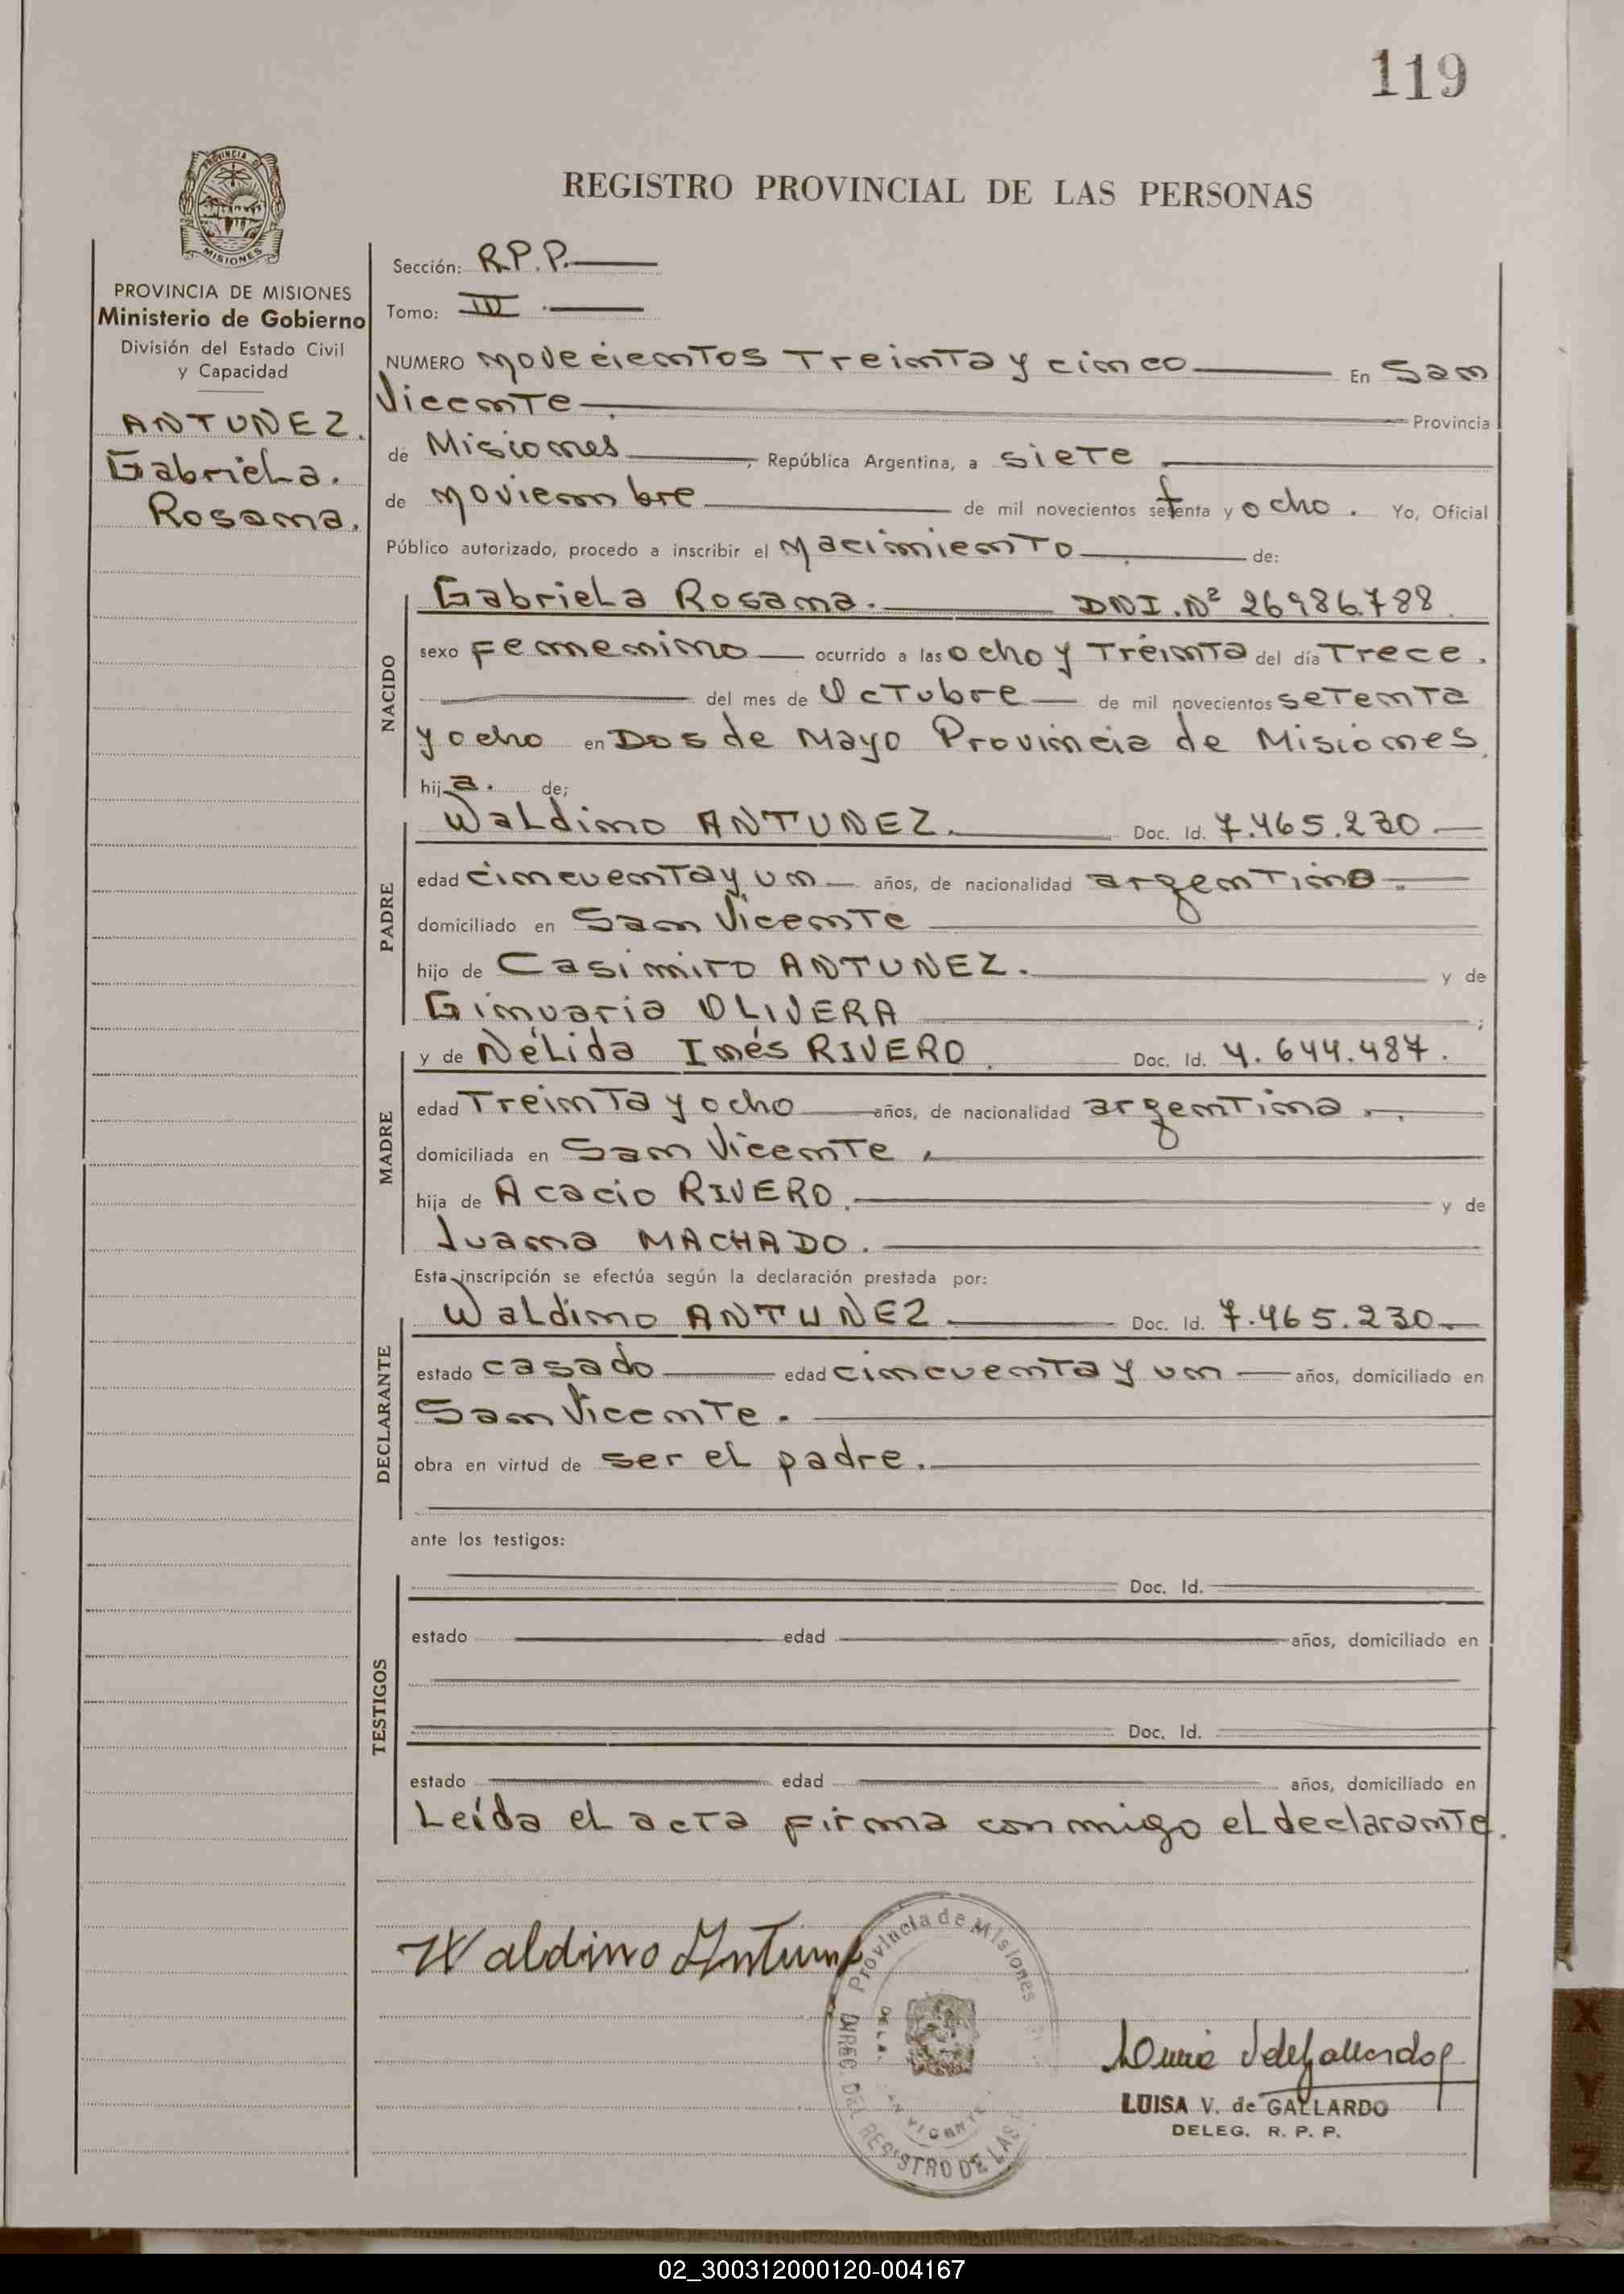 119
PROVINCIA DE
MISIONES
REGISTRO PROVINCIAL DE LAS PERSONAS
PROVINCIA DE MISIONES
Ministerio de Gobierno
División del Estado Civil
y Capacidad
ANTUNEZ.
Gabriela.
Rosana.
Sección: R.P.P.
Tomo: III
NUMERO Novecientos Treinta y cinco En San
Vicente Provincia
de Misiones, República Argentina, a siete
de Noviembre de mil novecientos setenta y ocho. Yo, Oficial
Público autorizado, procedo a inscribir el Nacimiento de:
NACIDO
Gabriela Rosana. DNI.Nº 26986788.
sexo Femenino ocurrido a las ocho y Treinta del día Trece.
del mes de Octubre de mil novecientos setenta
y ocho en Dos de Mayo Provincia de Misiones.
hija. de;
PADRE
Waldino ANTUNEZ. Doc. Id. 7.465.230
edad cincuenta y un años, de nacionalidad argentino.
domiciliado en San Vicente
hijo de Casimiro ANTUNEZ. y de
Ginuaria OLIVERA ;
MADRE
y de Nélida Inés RIVERO. Doc. Id. 4.644.487.
edad Treinta y ocho años, de nacionalidad argentina.
domiciliada en San Vicente.
hija de Acacio RIVERO. y de
Juana MACHADO.
Esta inscripción se efectúa según la declaración prestada por:
DECLARANTE
Waldino ANTUNEZ Doc. Id. 7.465.230
estado casado edad cincuenta y un años, domiciliado en
San Vicente.
obra en virtud de ser el padre.
ante los testigos:
TESTIGOS
Doc. Id.
estado edad años, domiciliado en
Doc. Id.
estado edad años, domiciliado en
Leída el acta firma conmigo el declarante.
Waldino Antunez
Provincia de Misiones
DIREC. DEL REGISTRO DE LAS
LUISA V. de GALLARDO
DELEG. R. P. P.
X
Y
Z
02_300312000120-004167